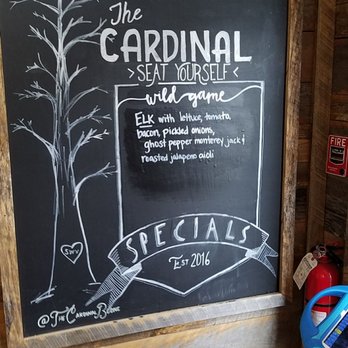 The
CARDINAL
>SEAT YOURSELF<
wild game
ELK with lettuce, tomato,
bacon, pickled onions,
ghost pepper monterey jack &
roasted jalapeno aioli
SPECIALS
EST 2016
@THE CARDINAL BOONE
FIRE